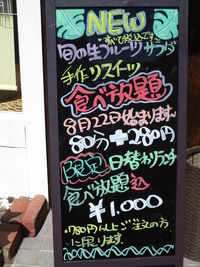 NEW
すべて税込です
旬の生フルーツサラダ
手作りスイーツ
食べ放題
8月22日始まります
80分+280円
限定 日替わりランチ
食べ放題込
¥1,000
・780円以上ご注文の方
に限ります。